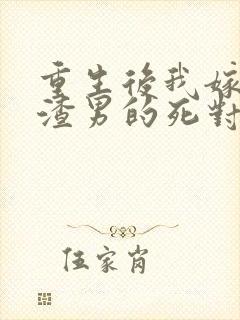 重生後我嫁
渣男的死對
伍家肖